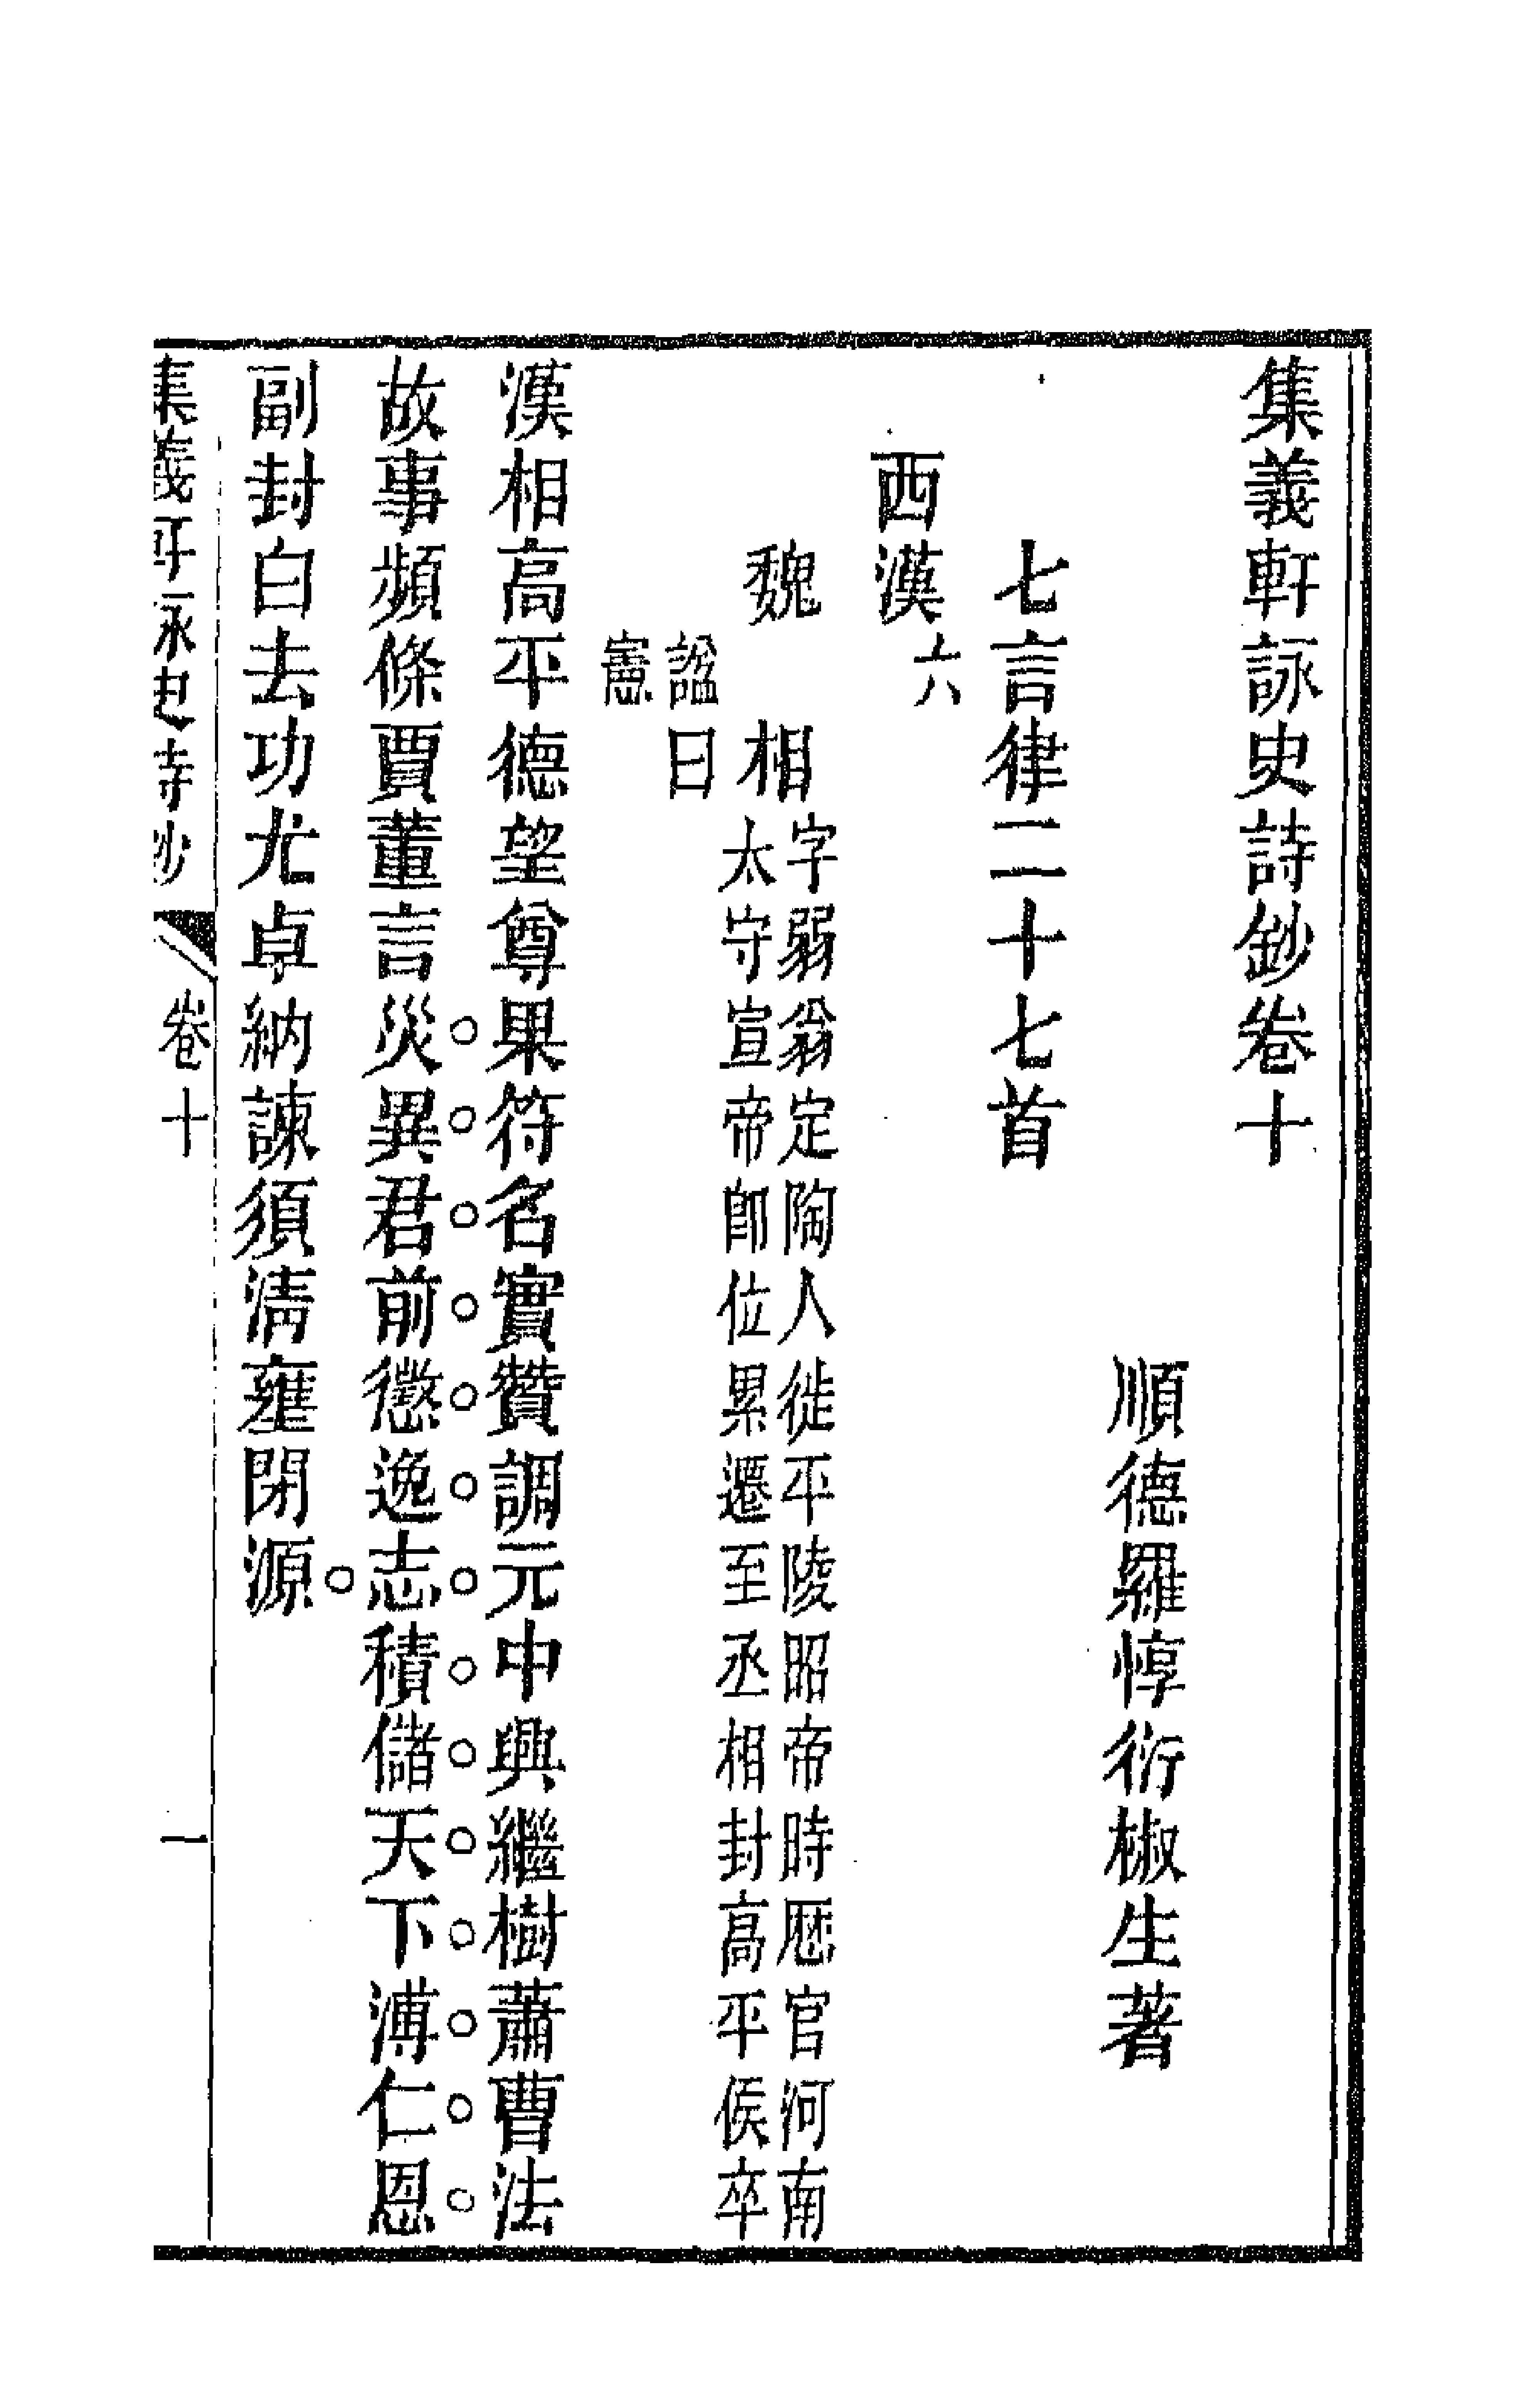 集義軒詠史詩鈔卷十
順德羅惇衍椒生著
七言律二十七首
西漢六
魏相字弱翁定陶人徙平陵昭帝時歷官河南
太守宣帝卽位累遷至丞相封高平侯卒
諡曰
憲
漢相高平德望尊果符名實贊調元中興繼樹蕭曹法
故事頻條賈董言災異君前懲逸志積儲天下溥仁恩
副封白去功尤卓納諫須淸壅閉源
集義軒詠史詩鈔 卷十 一